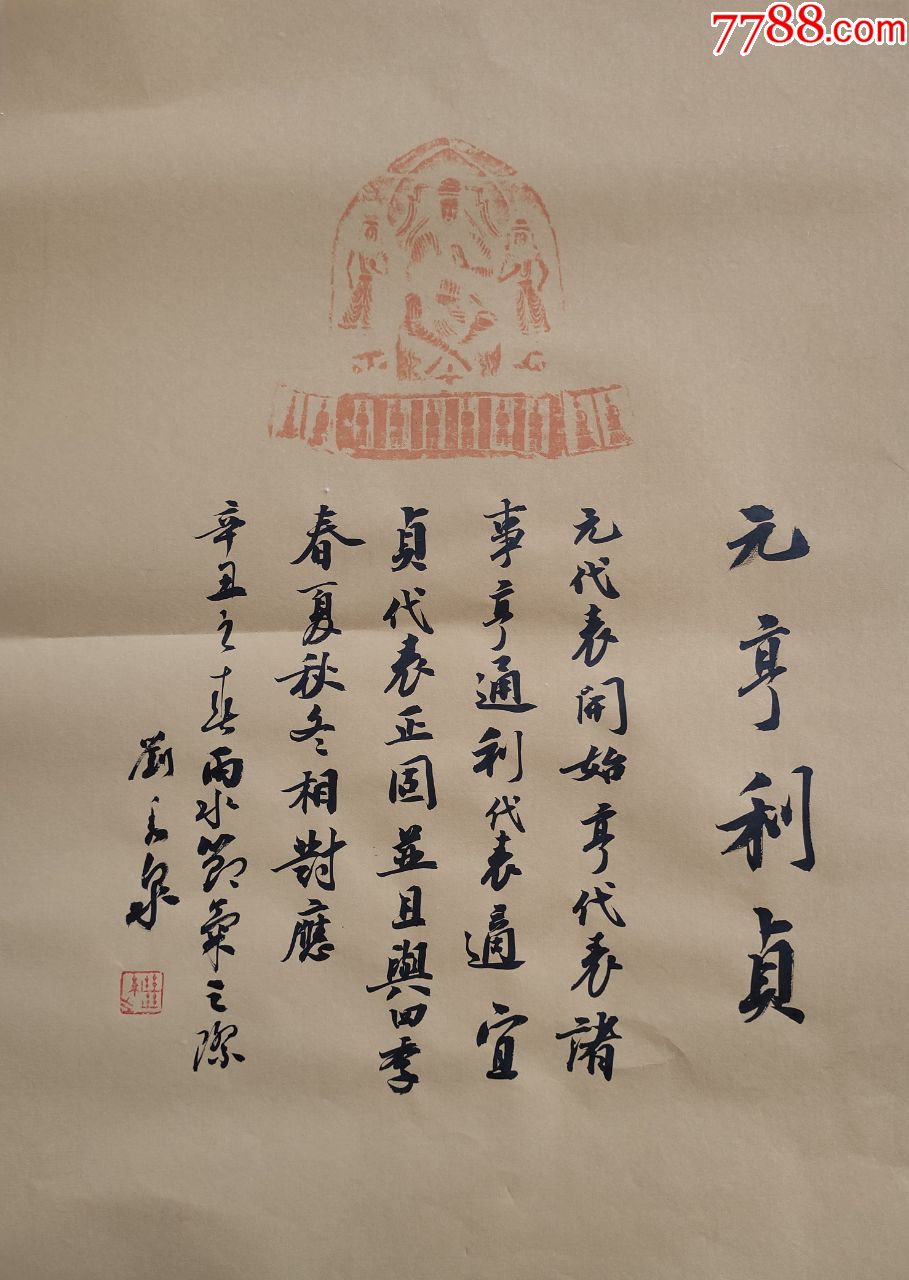 7788.com
元亨利貞
元代表開始亨代表諸
事亨通利代表適宜
貞代表正固並且與四季
春夏秋冬相對應
辛丑之春雨水節氣之際
劉泉